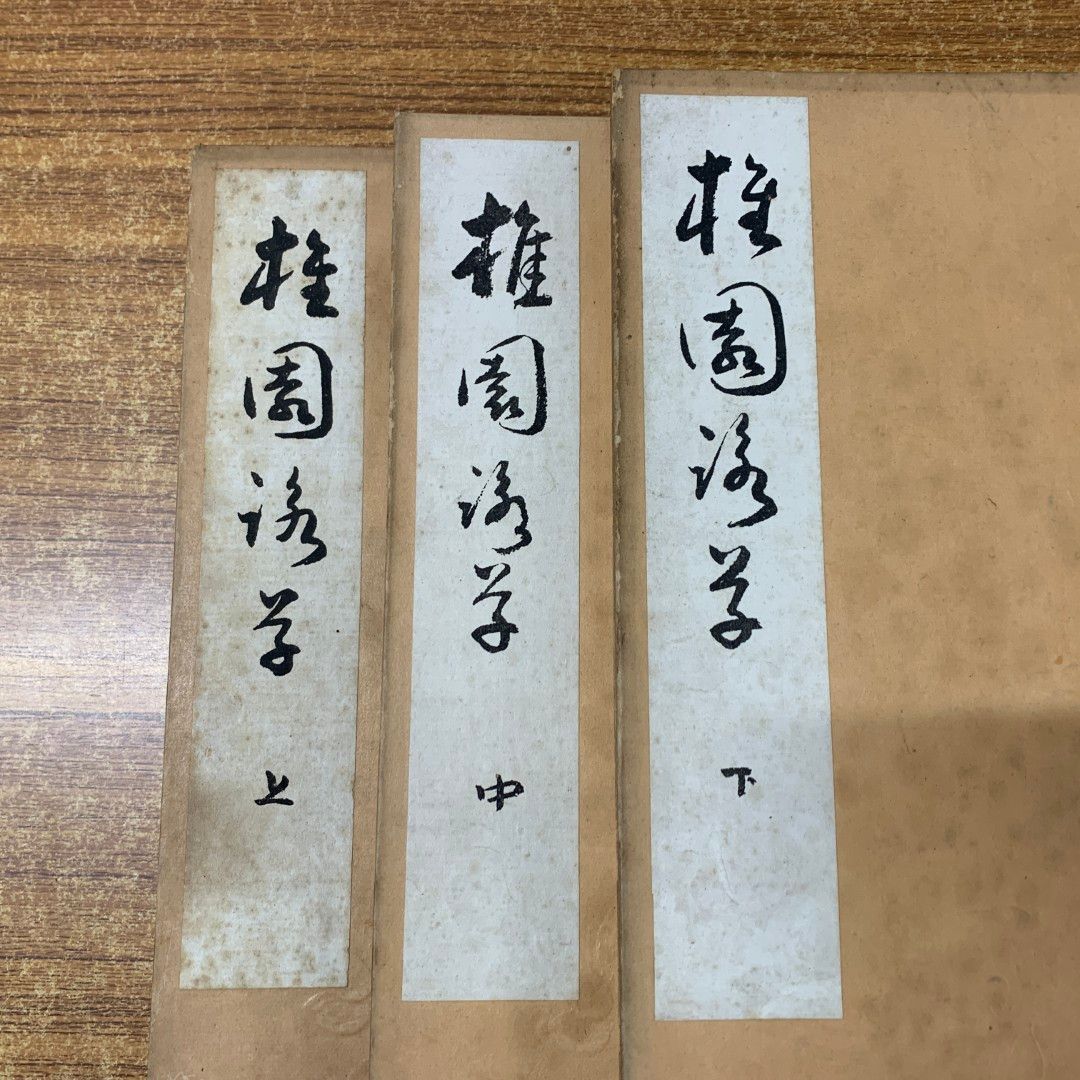 椎園詠草 上
椎園詠草 中
椎園詠草 下